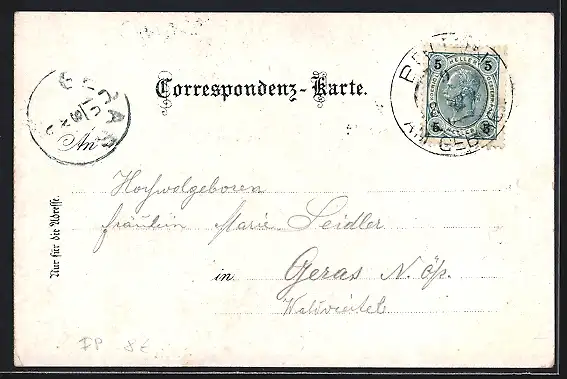 Correspondenz-Karte.
5 HELLER 5
HELLER
GERAS
An
Hochwolgeboren
Fräulein Marie Seidler
in Geras N. Öst.
Waldviertel
Nur für die Adresse.